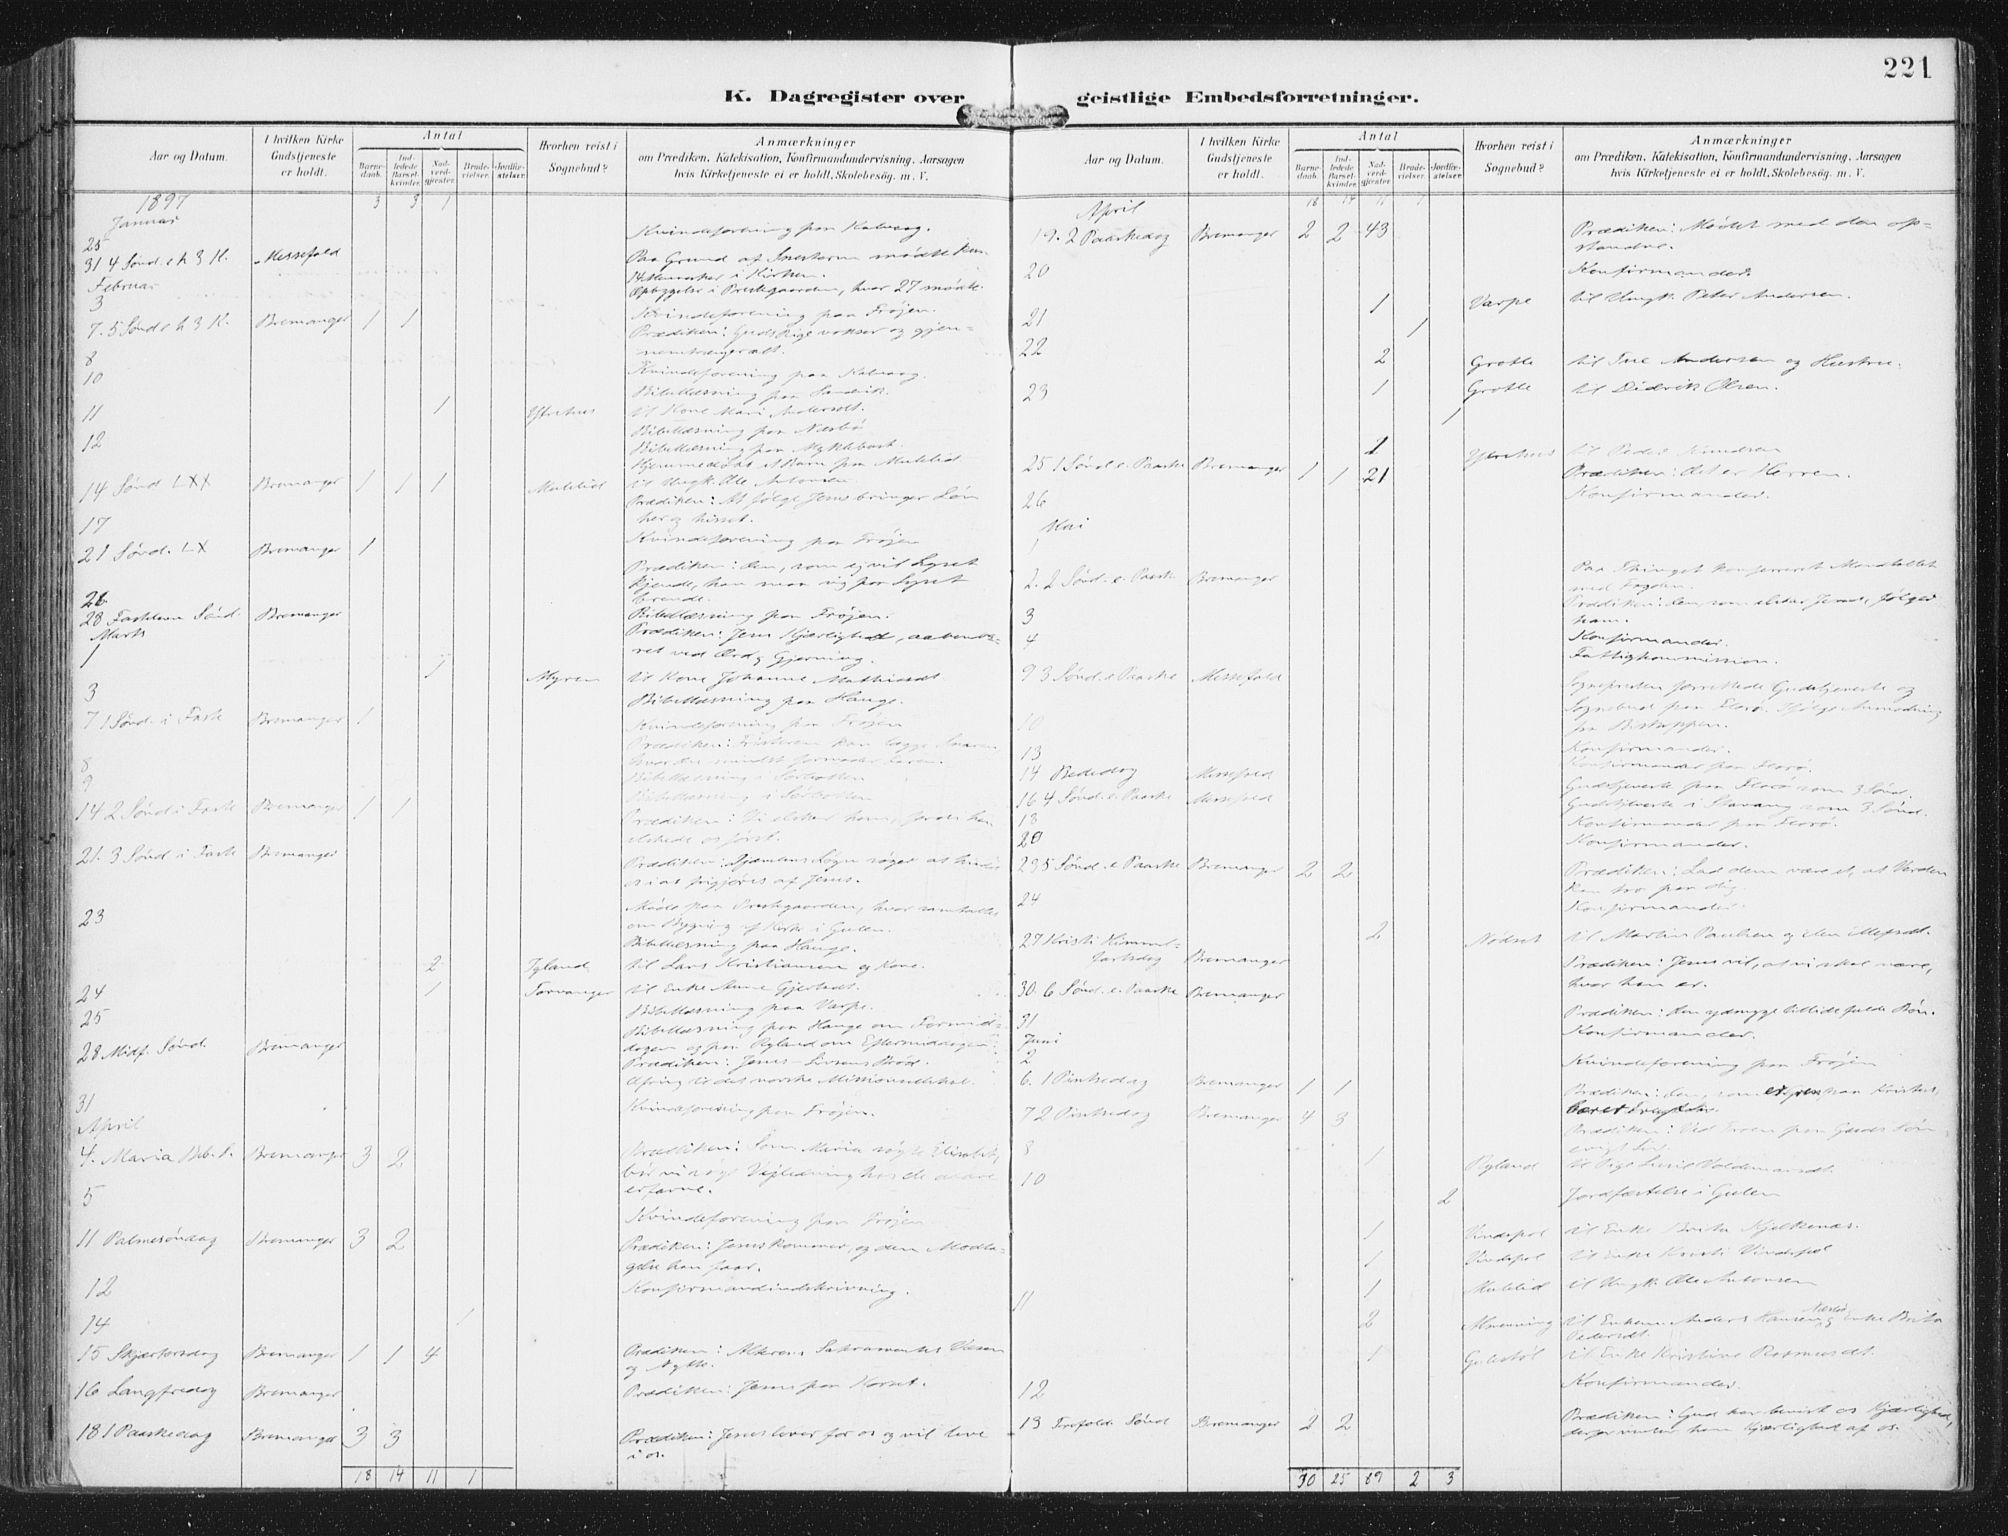 221
K. Dagregister over geistlige Embedsforretninger.
Aar og Datum.
I hvilken Kirke Gudstjeneste er holdt.
Antal
Barnedaab.
Indledede Barselkvinder.
Nadverdgjester.
Brudevielser.
Jordfæstelser.
Hvorhen reist i Sognebud?
Anmærkninger
om Prædiken, Katekisation, Konfirmandundervisning, Aarsagen
hvis Kirketjeneste ei er holdt, Skolebesøg, m. V.
1897 3 3 1
Januar
25 Kvindeforening paa Kalvaag.
31 4 Sønd. e. h. 3 K. Messefold Paa Grund af Snestorm mødte kun
14 Mennesker i Kirken.
Februar Opbyggelse i Prestegaarden, hvor 27 mødte.
3 Kvindeforening paa Frøjen.
7. 5 Sønd. e. h. 3 K. Bremanger 1 1 Prædiken: Guds Rige vokser og gjen-
nemtrænger alt.
8 Kvindeforening paa Kalvaag.
10 Bibellæsning paa
11 1 Ytrehus til Kone Mari Andersdt.
Bibellæsning paa Næsbø
12 Bibellæsning paa Myklebust.
Hjemmedøbt et Barn paa Mulelid
14 Sønd. LXX Bremanger 1 1 1 Mulelid til Ungk. Ole Antonsen.
Prædiken: At følge Jesus bringer Løn
her og hisset.
17 Kvindeforening paa Frøjen
21 Sønd. LX Bremanger 1 Prædiken: Den, som ej vil Lyset
kjende, han maa sig paa Lyset
brænde.
26 Bibellæsning paa Frøjen.
28 Fastelavn Sønd. Bremanger Prædiken: Jesu Kjærlighed, aabenba-
ret ved Ord og Gjerning.
Marts
1 1 Myren til Kone Johanne Mathiasdt
3 Bibellæsning paa Hauge.
Kvindeforening paa Frøjen
7 1 Sønd. i Faste Bremanger 1 Prædiken: Fristeren kan lægge Snaren
hvor du mindst formoder Faren.
8 Bibellæsning i Sørbotten
9 Bibellæsning i Sørbotten
14 2 Sønd. i Faste Bremanger 1 1 Prædiken: Vi elsker ham, fordi han
elskede os først.
21. 3 Sønd. i Faste Bremanger Prædiken: Djævelens Løgn søger at hindre
os i at frigjøres af Jesus.
23 Møde paa Prestegaarden, hvor samtaltes
om Bygning af Kirke i Gulen.
Bibellæsning paa Hauge.
2 Igland til Lars Kristiansen og Kone.
24 1 Torvanger til Enke Anne Gjertsdt.
25 Bibellæsning paa Varpe.
Bibellæsning paa Hauge om Formid-
dagen og paa Ryland om Eftermiddagen.
28 Midf. Sønd. Bremanger Prædiken: Jesus - Livsens Brød.
Ofring til det norske Missionsselskab.
31 Kvindeforening paa Frøjen.
April
4. Maria Beb. D. Bremanger 3 2 Prædiken: Som Maria søgte Elisabet,
bør vi søge Vejledning hos de ældre
erfarne.
5 Kvindeforening paa Frøjen
11 Palmesøndag Bremanger 3 2 Prædiken: Jesus kommer, og den Modta-
gelse han faar.
12 Konfirmandindskrivning.
14 1
15 Skjærtorsdag Bremanger 1 1 4 Prædiken: Alterens Sakramentes Væsen
og Nytte.
16 Langfredag Bremanger Prædiken: Jesus paa Korset.
18 1 Paaskedag Bremanger 3 3 Prædiken: Jesus lever for os og vil leve
i os.
18 14 11 1
Aar og Datum.
I hvilken Kirke Gudstjeneste er holdt.
Antal
Barnedaab.
Indledede Barselkvinder.
Nadverdgjester.
Brudevielser.
Jordfæstelser.
Hvorhen reist i Sognebud?
Anmærkninger
om Prædiken, Katekisation, Konfirmandundervisning, Aarsagen
hvis Kirketjeneste ei er holdt, Skolebesøg, m. V.
18 14 11 1
April
19. 2 Paaskedag Bremanger 2 2 43 Prædiken: Mødet med den op-
standne.
20 Konfirmander.
1 Varpe til Ungk. Peter Andersen.
21 1
22 2 Grotle til Andersen og Hustru.
23 1 Grotle til Didrik Olsen.
1
1 Ytrehus til Peder Knudsen
25 1 Sønd. e. Paaske Bremanger 1 1 21 Prædiken: Det er Herren.
26 Konfirmander.
Mai
Paa Thinget konfereret Mandtallet
med Fogden.
2. 2 Sønd. e. Paaske Bremanger Prædiken: Den, som elsker Jesus, følger
ham.
3 Konfirmander.
4 Fattigkommission.
9 3 Sønd. e. Paaske Messefold Sognepresten forrettede Gudstjeneste og
Sognebud paa Florø ifølge Anmodning
fra Biskoppen.
10 Konfirmander.
13 Konfirmander paa Florø.
14 Bededag Messefold Gudstjeneste paa Florø som 3 Sønd.
16 4 Sønd. e. Paaske Messefold Gudstjeneste i Stavang som 3 Sønd.
18 Konfirmander paa Florø.
20 Konfirmander.
23 5 Sønd. e. Paaske Bremanger 2 2 Prædiken: Lad dem være et, at Verden
kan tro paa dig.
24 Konfirmander.
2 Nødset til Martin Paulsen og
27 Kristi Himmel-
fartsdag Bremanger Prædiken: Jesus vil, at vi skal være,
hvor han er.
30 6 Sønd. e. Paaske Bremanger Prædiken: Den ydmyge tillidsfulde Bøn.
31 Konfirmander.
Juni
2 Kvindeforening paa Frøjen
6. 1 Pintsedag Bremanger 1 1 Prædiken: Den, som Kristus,
bæret Frugter.
7 2 Pintsedag Bremanger 4 3 Prædiken: Ved Troen paa Guds Søn
evigt Liv.
8 1 Ryland til Pige Valdemarsdt.
10 2 Jordfæstelse i Gulen
1 Vindspol til Enke Brita Kjelkenæs.
1 Vindspol til Enke Kristi Vindspol
1 Mulelid til Ungk. Ole Antonsen
11 2 Almenning til Enkem. Anders Hansen Næsbø og Enke Brita
Pedersdt.
1 Gulestøl til Enke Kristine Rasmusdt.
12 Konfirmander.
13 Trefoldh. Sønd. Bremanger 2 2 Prædiken: Gud har bevist os Kjærlighed,
derfor venter han Kjærlighed af os.
30 25 89 2 3